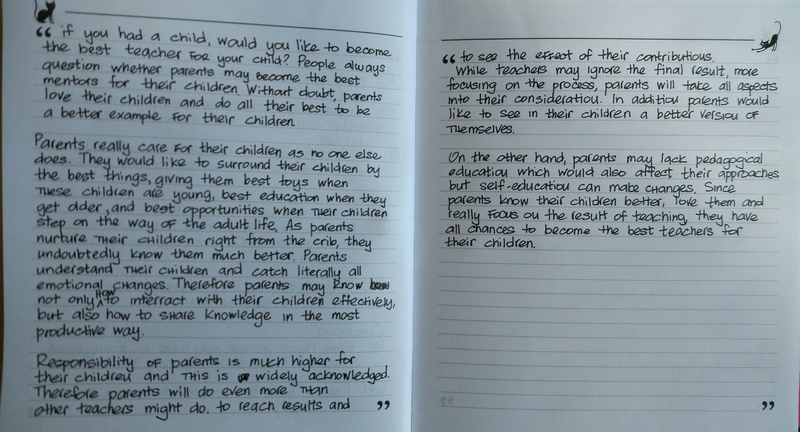 “ if you had a child, would you like to become
the best teacher for your child? People always
question whether parents may become the best
mentors for their children. Without doubt, parents
love their children and do all their best to be
a better example for their children.
Parents really care for their children as no one else
does. They would like to surround their children by
the best things, giving them best toys when
these children are young, best education when they
get older, and best opportunities when their children
step on the way of the adult life. As parents
nurture their children right from the crib, they
undoubtedly know them much better. Parents
understand their children and catch literally all
emotional changes. Therefore parents may know
not only how to interract with their children effectively,
but also how to share knowledge in the most
productive way.
Responsibility of parents is much higher for
their children and this is widely acknowledged.
Therefore parents will do even more than
other teachers might do. to reach results and ”
“ to see the effect of their contributions.
While teachers may ignore the final result, more
focusing on the process, parents will take all aspects
into their consideration. In addition parents would
like to see in their children a better version of
themselves.
On the other hand, parents may lack pedagogical
education which would also affect their approaches
but self-education can make changes. Since
parents know their children better, love them and
really focus on the result of teaching, they have
all chances to become the best teachers for
their children.
”